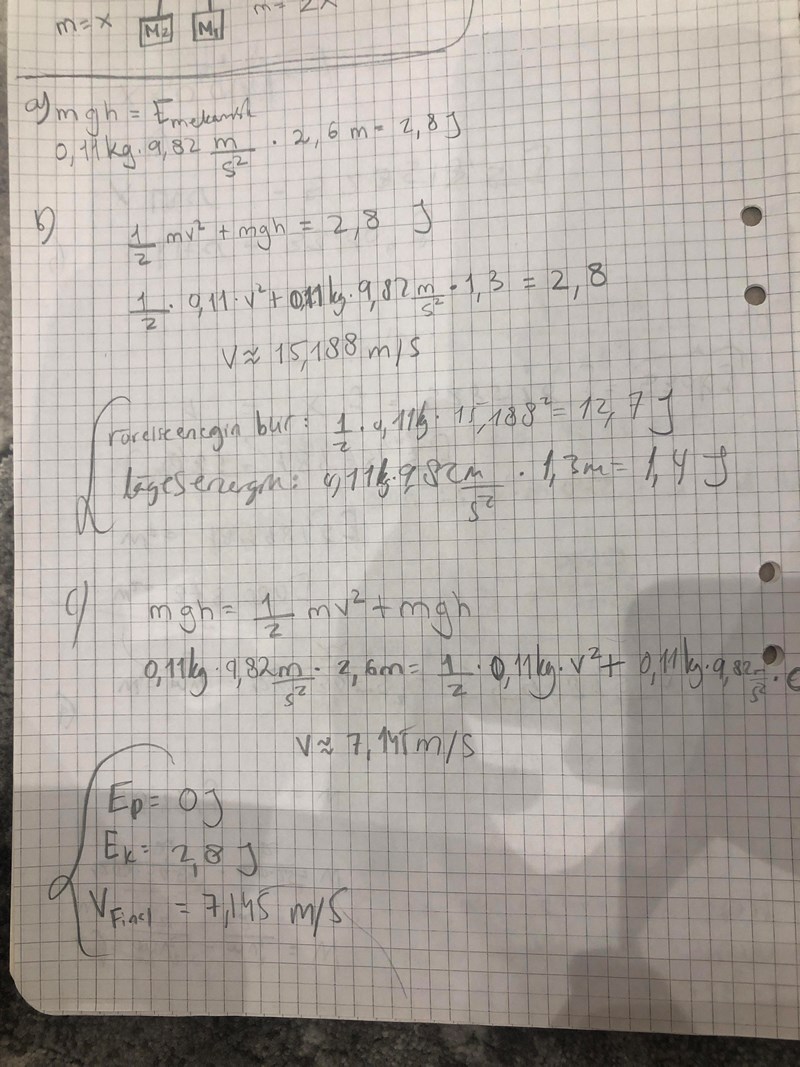 m=x M2 M1 m= 2x
a) mgh = Emekanisk
0,11kg·9,82 m/s² · 2,6 m = 2,8 J
b) 1/2 mv² + mgh = 2,8 J
1/2 · 0,11·v² + 0,11kg·9,82 m/s² · 1,3 = 2,8
V≈ 15,188 m/s
1/2 · 0,11kg · 15,188² = 12,7 J
0,11kg·9,82 m/s² · 1,3m = 1,4 J
c) mgh = 1/2 mv² + mgh
0,11kg·9,82 m/s² · 2,6m = 1/2 · 0,11kg·v² + 0,11kg·9,82 m/s² ·
V≈ 7,145 m/s
Ep = 0 J
Ek = 2,8 J
VFinal = 7,145 m/s